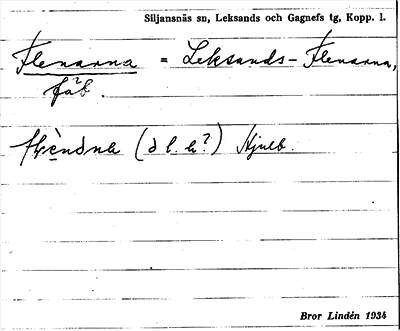 Siljansnäs sn, Leksands och Gagnefs tg, Kopp. l.
Flenarna = Leksands-Flenarna,
fäb.
(d l. a?)
Bror Lindén 1934